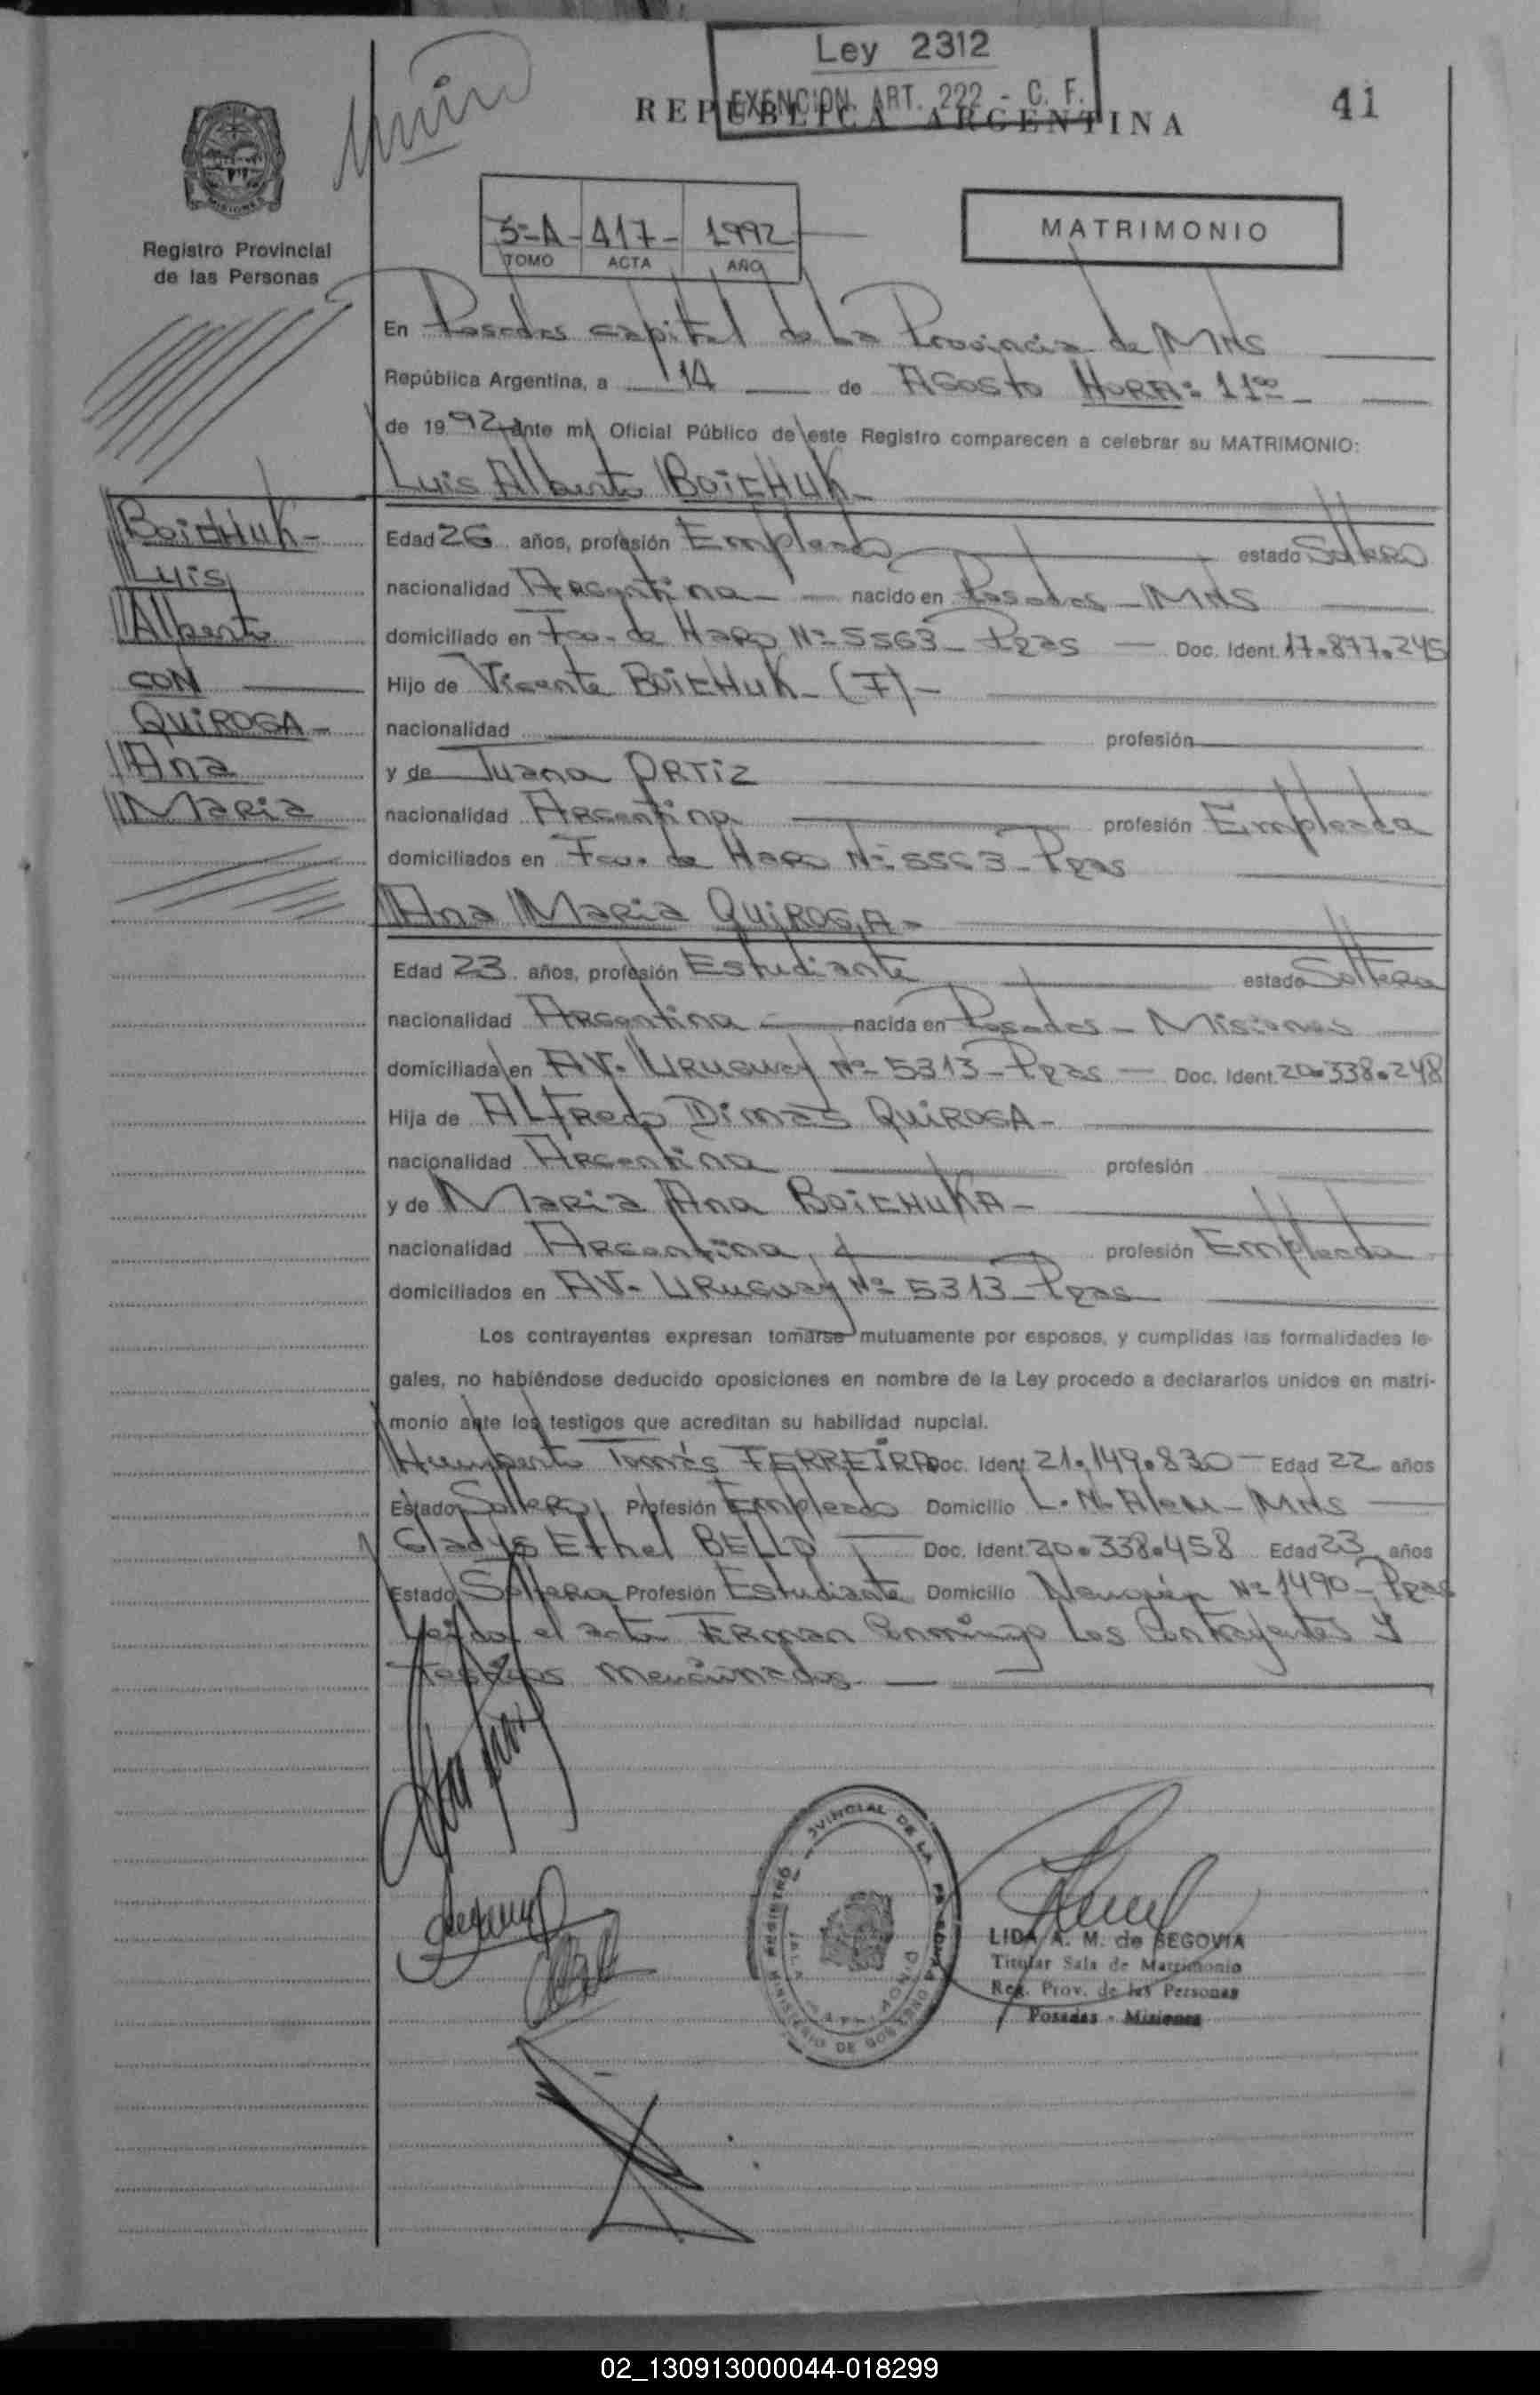 Ley 2312
EXENCION ART. 222 - C. F.
REPUBLICA ARGENTINA
41
MISIONES
Registro Provincial
de las Personas
MATRIMONIO
5-A - 417 - 1992
TOMO ACTA AÑO
En Posadas capital de La Provincia de MNS
República Argentina, a 14 de Agosto HORA: 11 00
de 1992 ante mí, Oficial Público de este Registro comparecen a celebrar su MATRIMONIO:
Luis Alberto BOICHUK-
BOICHUK-
Luis
Alberto
CON
QUIROGA-
Ana
Maria
Edad 26 años, profesión Empleado estado Soltero
nacionalidad Argentina - nacido en Posadas - MNS
domiciliado en Fco. de Haro Nº 5563 - Pdas - Doc. Ident. 17.877.245
Hijo de Vicente BOICHUK - (F) -
nacionalidad profesión
y de Juana ORTIZ
nacionalidad Argentina profesión Empleada
domiciliados en Fco. de Haro Nº 5563 - Pdas
Ana Maria QUIROGA-
Edad 23 años, profesión Estudiante estado Soltera
nacionalidad Argentina nacida en Posadas - Misiones
domiciliada en AV. Uruguay Nº 5313 - Pdas - Doc. Ident. 20.338.248
Hija de Alfredo Dimas QUIROGA-
nacionalidad Argentina profesión
y de Maria Ana BOICHUKA-
nacionalidad Argentina profesión Empleada
domiciliados en AV. Uruguay Nº 5313 - Pdas
Los contrayentes expresan tomarse mutuamente por esposos, y cumplidas las formalidades le-
gales, no habiéndose deducido oposiciones en nombre de la Ley procedo a declararlos unidos en matri-
monio ante los testigos que acreditan su habilidad nupcial.
Humberto Tomás FERREIRA Doc. Ident. 21.149.830 - Edad 22 años
Estado Soltero Profesión Empleado Domicilio L. N. Alem - MNS
Gladys Ethel BELLO Doc. Ident. 20.338.458 Edad 23 años
Estado Soltera Profesión Estudiante Domicilio Neuquén Nº 1490 - Pdas
Leída el acta Firman Conmigo Los Contrayentes y
Testigos Mencionados.
LIDA A. M. de SEGOVIA
Titular Sala de Matrimonio
Reg. Prov. de las Personas
Posadas - Misiones
02_130913000044-018299